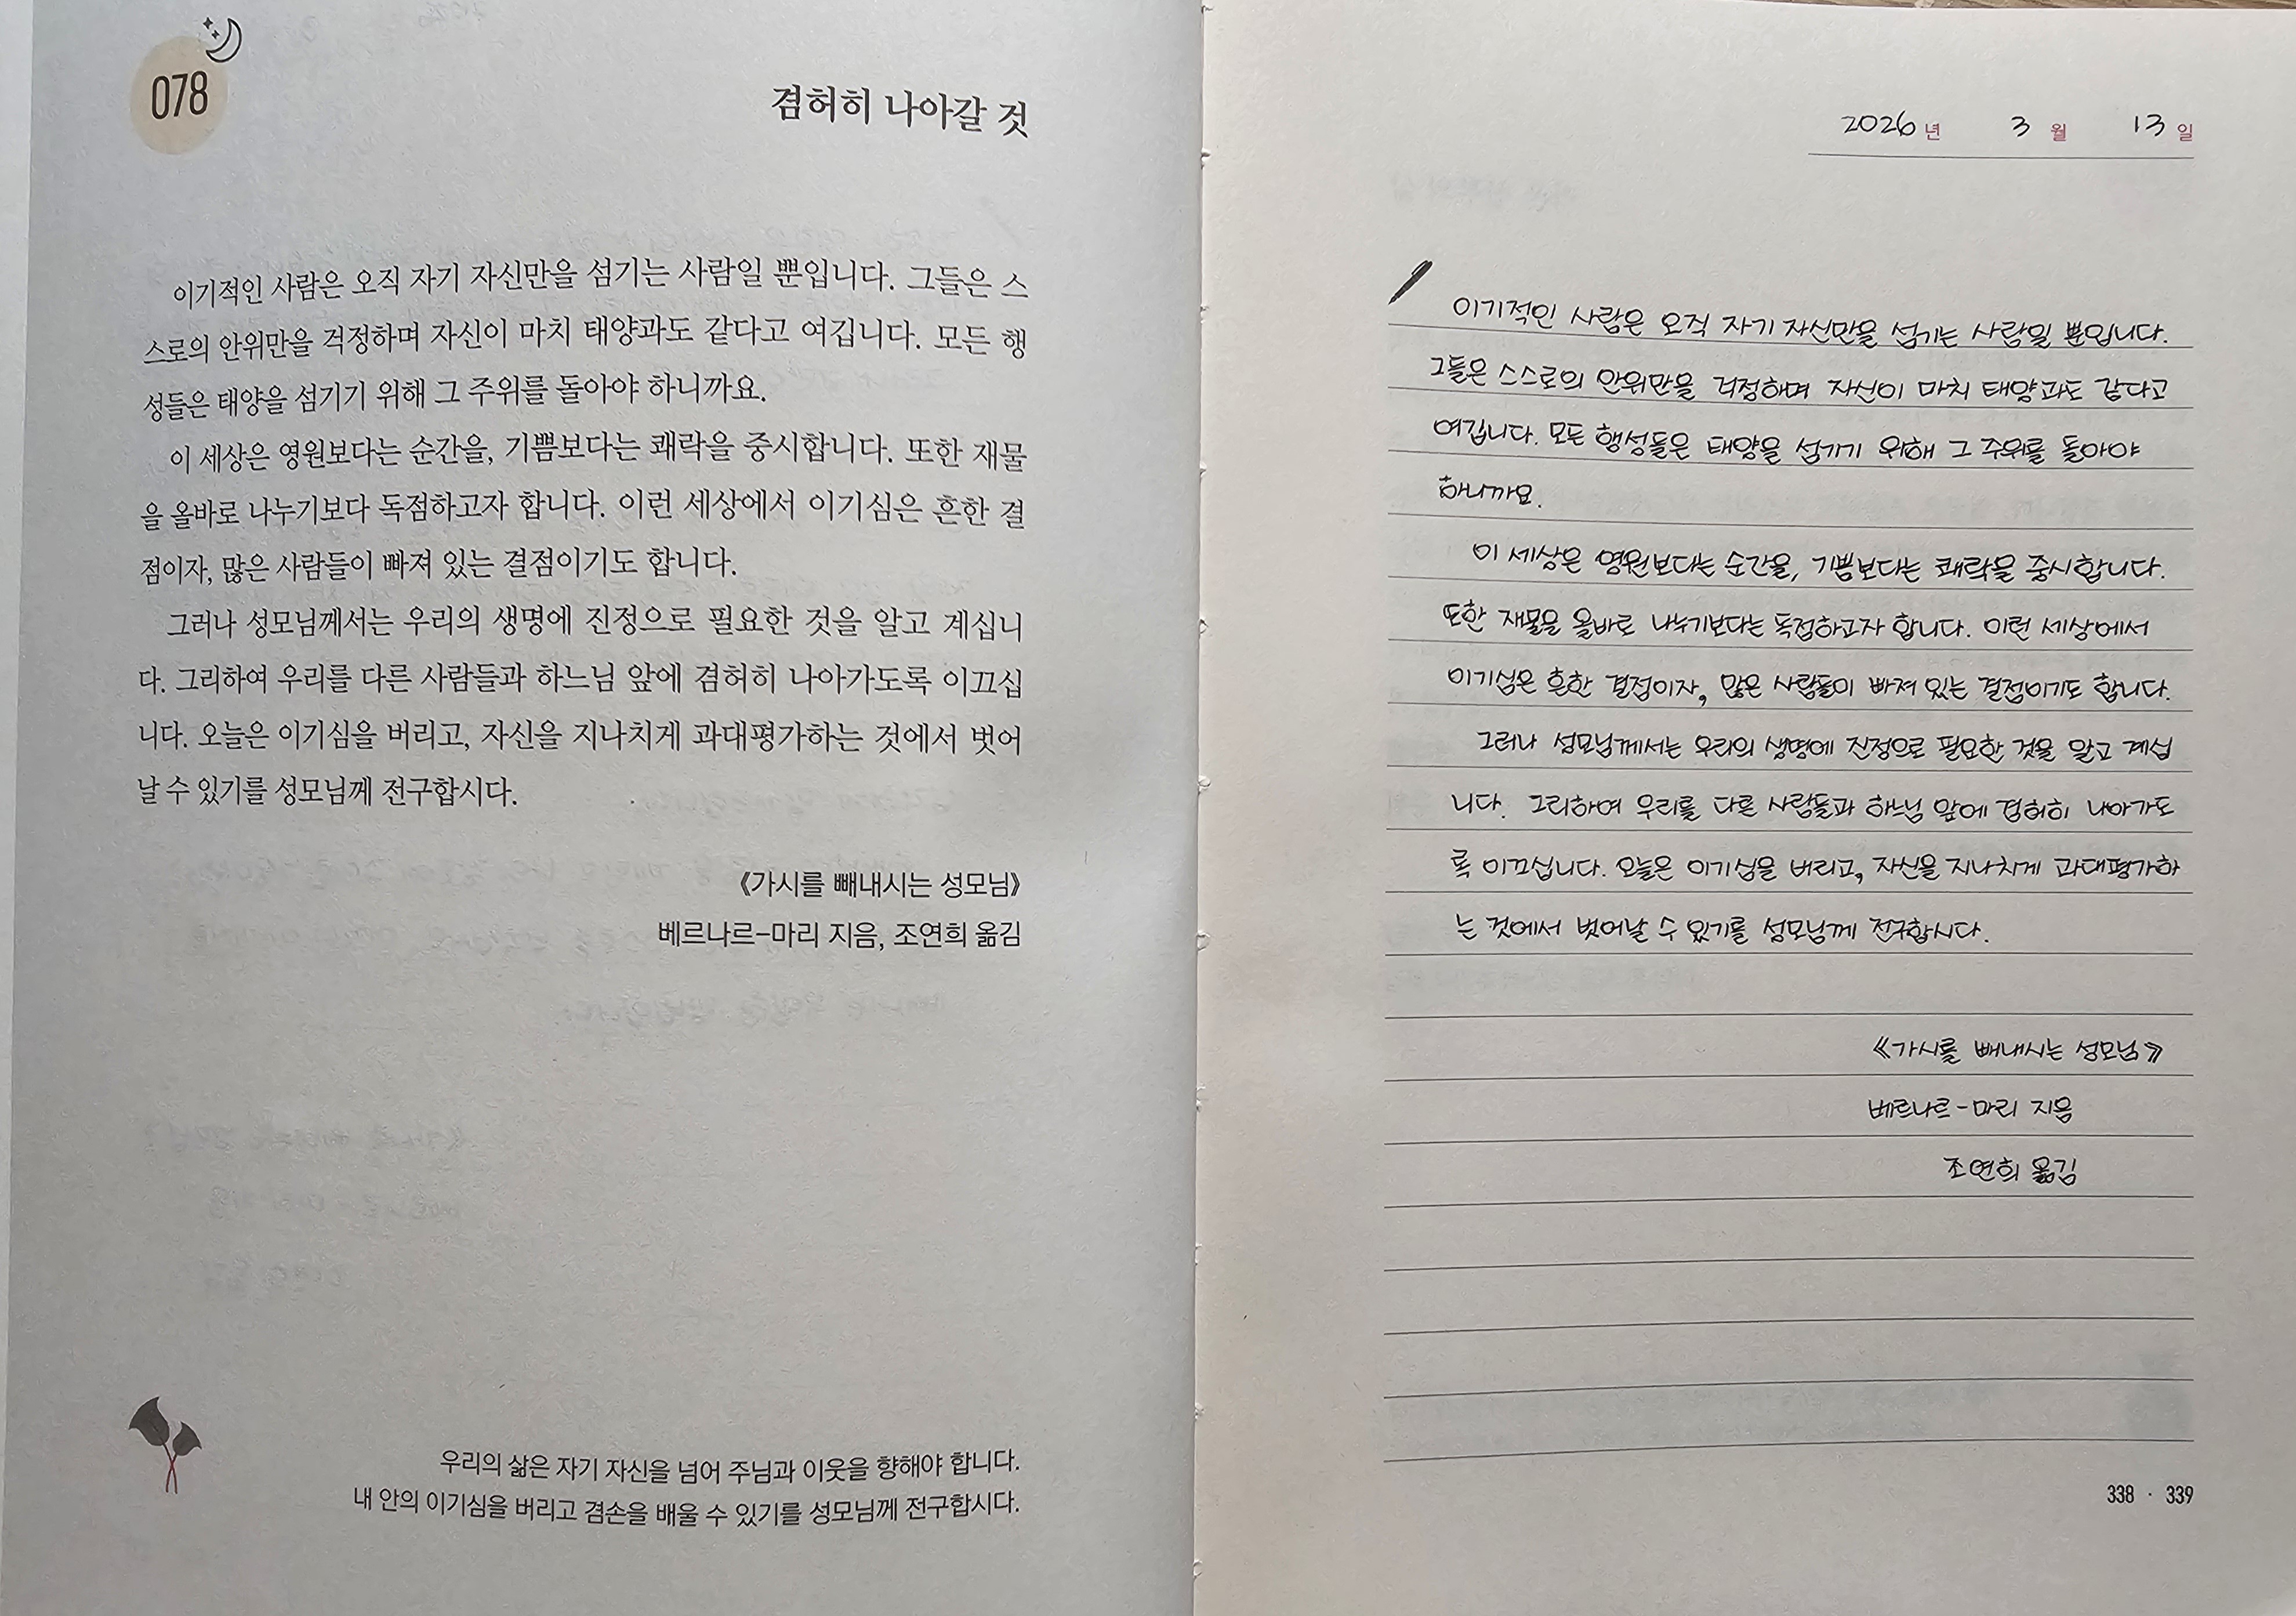 078
겸허히 나아갈 것
이기적인 사람은 오직 자기 자신만을 섬기는 사람일 뿐입니다. 그들은 스
스로의 안위만을 걱정하며 자신이 마치 태양과도 같다고 여깁니다. 모든 행
성들은 태양을 섬기기 위해 그 주위를 돌아야 하니까요.
이 세상은 영원보다는 순간을, 기쁨보다는 쾌락을 중시합니다. 또한 재물
을 올바로 나누기보다 독점하고자 합니다. 이런 세상에서 이기심은 흔한 결
점이자, 많은 사람들이 빠져 있는 결점이기도 합니다.
그러나 성모님께서는 우리의 생명에 진정으로 필요한 것을 알고 계십니
다. 그리하여 우리를 다른 사람들과 하느님 앞에 겸허히 나아가도록 이끄십
니다. 오늘은 이기심을 버리고, 자신을 지나치게 과대평가하는 것에서 벗어
날 수 있기를 성모님께 전구합시다.
《가시를 빼내시는 성모님》
베르나르-마리 지음, 조연희 옮김
우리의 삶은 자기 자신을 넘어 주님과 이웃을 향해야 합니다.
내 안의 이기심을 버리고 겸손을 배울 수 있기를 성모님께 전구합시다.
2026년 3월 13일
이기적인 사람은 오직 자기 자신만을 섬기는 사람일 뿐입니다.
그들은 스스로의 안위만을 걱정하며 자신이 마치 태양과도 같다고
여깁니다. 모든 행성들은 태양을 섬기기 위해 그 주위를 돌아야
하니까요.
이 세상은 영원보다는 순간을, 기쁨보다는 쾌락을 중시합니다.
또한 재물을 올바로 나누기보다는 독점하고자 합니다. 이런 세상에서
이기심은 흔한 결점이자, 많은 사람들이 빠져 있는 결점이기도 합니다.
그러나 성모님께서는 우리의 생명에 진정으로 필요한 것을 알고 계십
니다. 그리하여 우리를 다른 사람들과 하느님 앞에 겸허히 나아가도
록 이끄십니다. 오늘은 이기심을 버리고, 자신을 지나치게 과대평가하
는 것에서 벗어날 수 있기를 성모님께 전구합시다.
《가시를 빼내시는 성모님》
베르나르-마리 지음
조연희 옮김
338 · 339